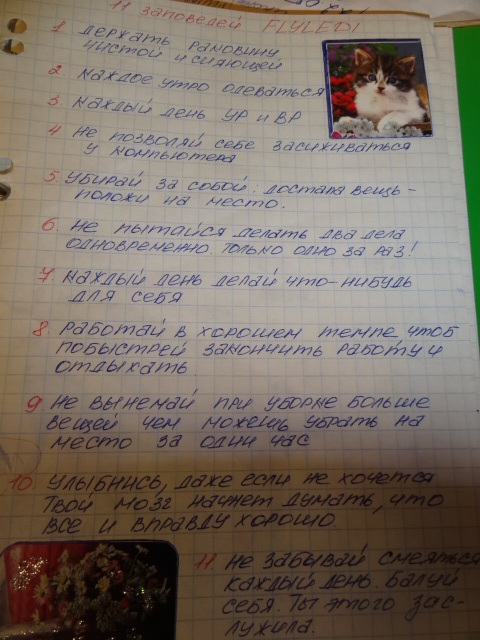 11 заповедей FLYLEDI
1 держать раковину
чистой и сияющей
2 каждое утро одеваться
3 каждый день УР и ВР
4 не позволяй себе засиживаться
у компьютера
5. убирай за собой. достала вещь -
положи на место.
6. не пытайся делать два дела
одновременно. только одно за раз!
7. каждый день делай что-нибудь
для себя
8. работай в хорошем темпе чтоб
побыстрей закончить работу и
отдыхать
9 не вынемай при уборке больше
вещей чем можешь убрать на
место за один час
10. улыбнись, даже если не хочется
твой мозг начнет думать, что
все и вправду хорошо
11. не забывай смеяться
каждый день. Балуй
себя. Ты этого зас-
лужила.